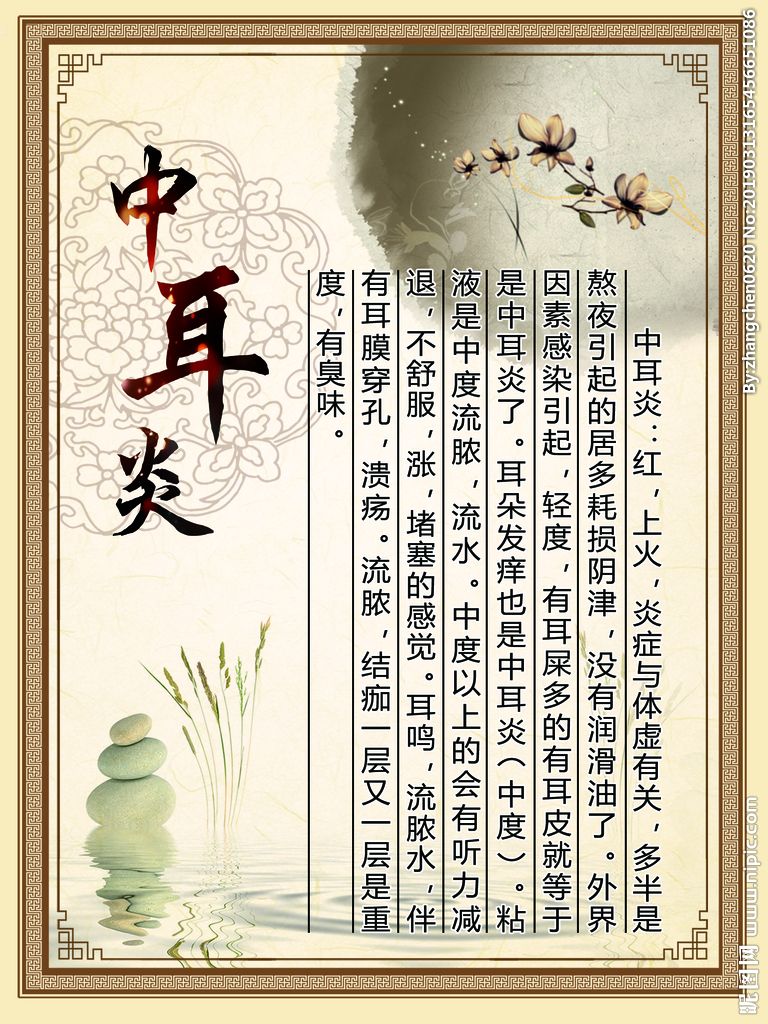 中耳炎
中耳炎：红，上火，炎症与体虚有关，多半是
熬夜引起的居多耗损阴津，没有润滑油了。外界
因素感染引起，轻度，有耳屎多的有耳皮就等于
是中耳炎了。耳朵发痒也是中耳炎（中度）。粘
液是中度流脓，流水。中度以上的会有听力减
退，不舒服，涨，堵塞的感觉。耳鸣，流脓水，伴
有耳膜穿孔，溃疡。流脓，结痂一层又一层是重
度，有臭味。
By:zhangchen0620 No:20190313165456651086
昵图网 www.nipic.com